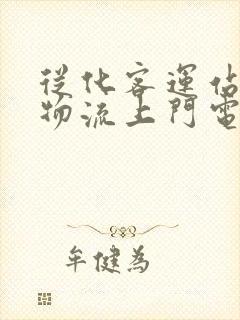 從化客運佔
物流上門電
牟健為